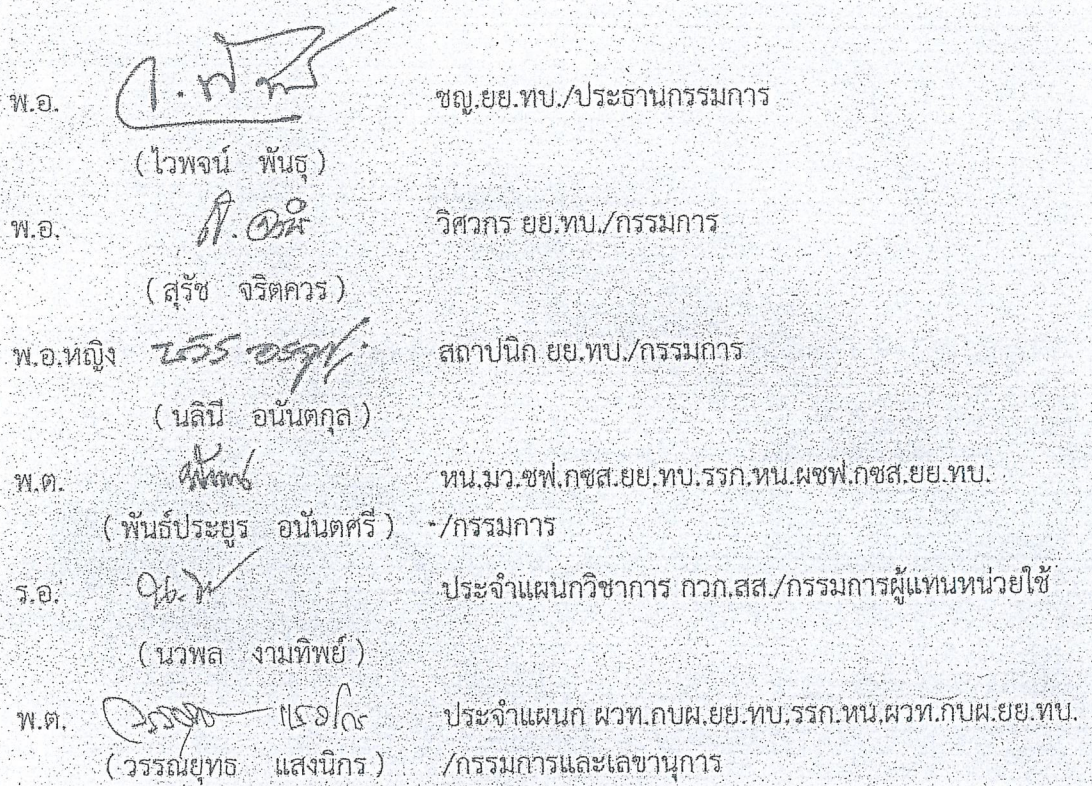 พ.อ. ชญ.ยย.ทบ./ประธานกรรมการ
( ไวพจน์ พันธุ )
พ.อ. วิศวกร ยย.ทบ./กรรมการ
( สุรัช จริตควร )
พ.อ.หญิง สถาปนิก ยย.ทบ./กรรมการ
( นลินี อนันตกุล )
พ.ต. หน.มว.ชฟ.กซส.ยย.ทบ.รรก.หน.ผซฟ.กซส.ยย.ทบ.
( พันธ์ประยูร อนันตศรี ) -/กรรมการ
ร.อ. ประจำแผนกวิชาการ กวก.สส./กรรมการผู้แทนหน่วยใช้
( นวพล งามทิพย์ )
พ.ต. ประจำแผนก ผวท.กบผ.ยย.ทบ.รรก.หน.ผวท.กบผ.ยย.ทบ.
( วรรณยุทธ แสงนิกร ) /กรรมการและเลขานุการ